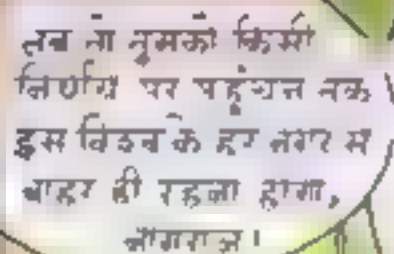 तब तो तुमको किसी
निर्णय पर पहुंचने तक
इस विश्व के हर नगर से
बाहर ही रहना होगा,
नागराज।